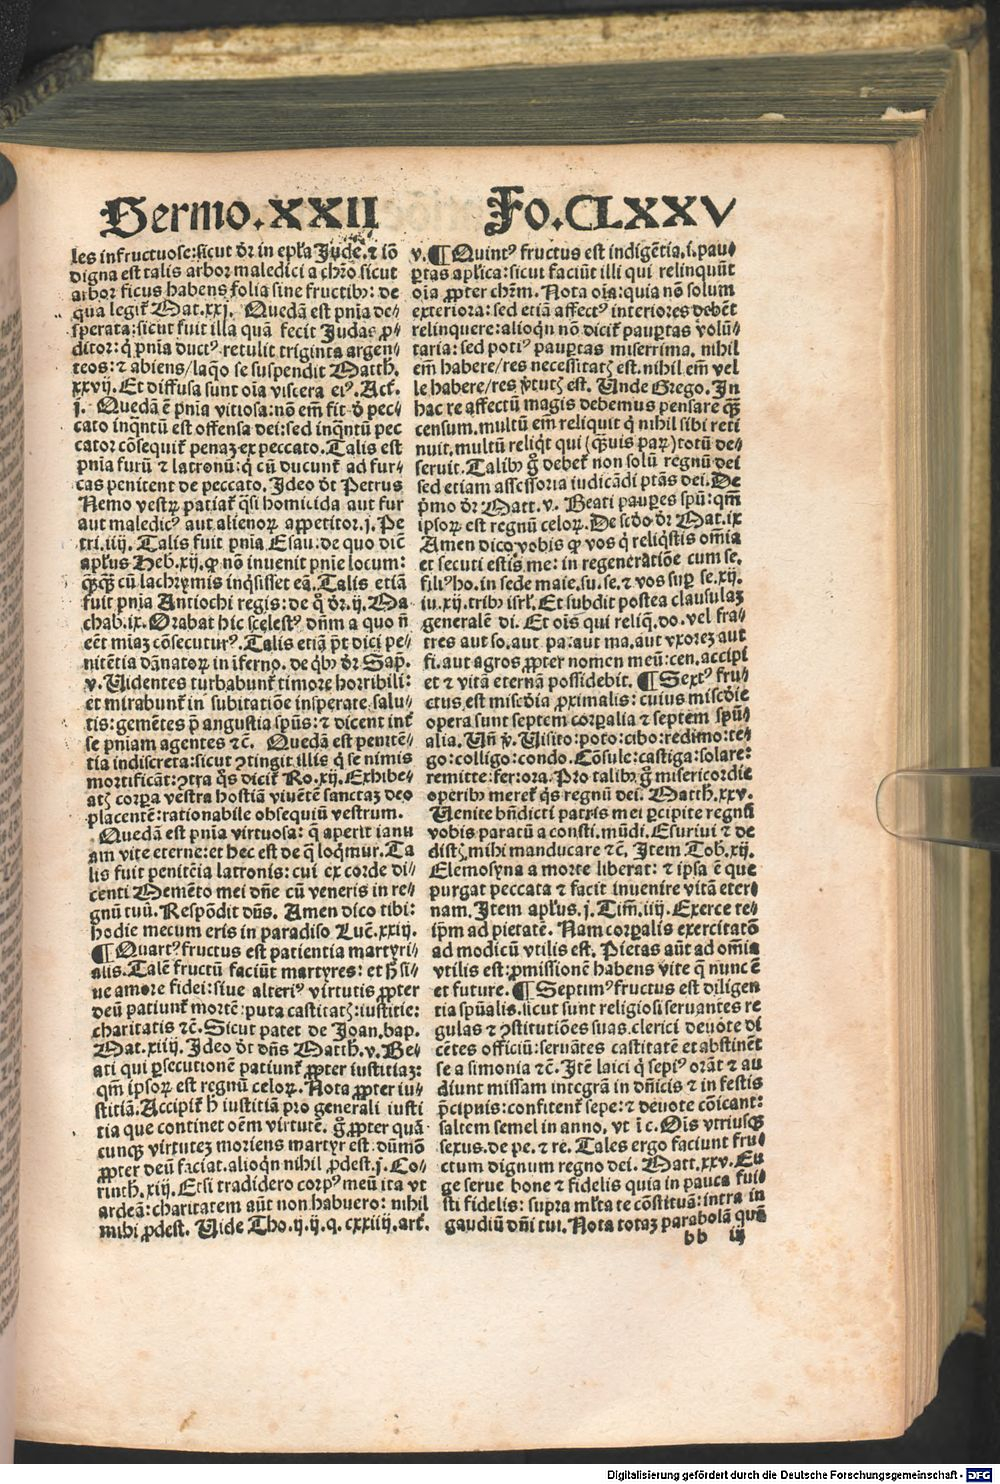 Sermo.XXII Fo.CLXXV
les infructuose:sicut dr̃ in ep̃la Jude.⁊ iõ
digna est talis arbor maledici a chr̃o sicut
arbor ficus habens folia sine fructibꝰ: de
qua legit̃ Mat.xxj. Quedã est pnĩa de⸗
sperata:sicut fuit illa quã fecit Judas ꝓ⸗
ditor:q̃ pnĩa ductꝰ retulit triginta argen⸗
teos:⁊ abiens/laq̃o se suspendit Matth.
xxvij. Et diffusa sunt oĩa viscera eiꝰ. Act̃.
j. Quedã ẽ pnĩa vitiosa:nõ em̃ fit ꝓ pec⸗
cato inq̃ntũ est offensa dei:sed inq̃ntũ pec
cator cõsequit̃ penaꝫ ex peccato.Talis est
pnĩa furũ ⁊ latronũ:q̃ cũ ducunt̃ ad fur⸗
cas penitent de peccato. Ideo dt̃ Petrus
Nemo vestrꝝ patiat̃ q̃si homicida aut fur
aut maledicꝰ aut alienoꝝ appetitor.j. Pe
tri.iiij. Talis fuit pnĩa Esau:de quo dic̃
apl̃us Heb.xij.ꝙ nõ invenit pnĩe locum:
q̃ꝙ̃ cũ lachrymis inq̃sisset eã.Talis etiã
fuit pnĩa Antiochi regis:de q̃ dr̃.ij.Ma
chab.ix.Orabat hic scelestꝰ dñm a quo ñ
eẽt miaꝫ cõsecuturꝰ.Talis etiã põt dici pe⸗
nitẽtia dãnatoꝝ in ĩferno.de q̃bꝰ dr̃ Sap̃.
v.Uidentes turbabunt̃ timore horribili:
et mirabunt̃ in subitatiõe insperate salu⸗
tis:gemẽtes p̃ angustia spũs:⁊ dicent int̃
se pniam agentes ⁊c̃. Quedã est penitẽ⸗
tia indiscreta:sicut ꝯtingit illis q̃ se nimis
mortificãt:ꝯtra q̃s dicit̃ Ro.xij.Exhibe⸗
atꝭ corpa vestra hostiã viuẽtẽ sanctaꝫ deo
placentẽ:rationabile obsequiũ vestrum.
Quedã est pnĩa virtuosa: q̃ aperit ianu
am vite eterne:et hec est de q̃ loq̃mur.Ta
lis fuit penitẽia latronis: cui ex corde di⸗
centi Memẽto mei dñe cũ veneris in re⸗
gnũ tuũ.Respõdit dñs. Amen dico tibi:
hodie mecum eris in paradiso Luc̃.xxiij.
¶Quartꝰ fructus est patientia martyri⸗
alis.Talẽ fructũ faciũt martyres: et h̃ si⸗
ue amore fidei:siue alteriꝰ virtutis ꝓpter
deũ patiunt̃ mortẽ:puta castitatꝭ:iustitie:
charitatis ⁊c̃.Sicut patet de Joan.bap.
Mat.xiiij. Ideo dt̃ dñs Matth.v.Be⸗
ati qui ꝑsecutionẽ patiunt̃ ꝓpter iustitiaꝫ:
qm̃ ipsoꝝ est regnũ celoꝝ. Nota ꝓpter iu⸗
stitiã.Accipit̃ h̃ iustitiã pro generali iusti
tia que continet oẽm virtutẽ. g̃ ꝓpter quã⸗
cunqꝫ virtuteꝫ moriens martyr est:dũmõ
ꝓpter deũ faciat.alioq̃n nihil ꝓdest.j. Co⸗
rinth.xiij.Etsi tradidero corpꝰ meũ ita vt
ardeã:charitatem aũt non habuero: nihil
mihi ꝓdest. Uide Tho.ij.ij.q.cxxiiij.art̃.
v.¶Quintꝰ fructus est indigẽtia.i.pau⸗
ꝑtas apl̃ica:sicut faciũt illi qui relinquũt
oĩa ꝓpter chr̃m. Nota oĩa:quia nõ solum
exteriora:sed etiã affectꝰ interiores debẽt
relinquere:alioq̃n nõ dicit̃ pauꝑtas volũ⸗
taria:sed potiꝰ pauꝑtas miserrima. nihil
em̃ habere/res necessitatꝭ est.nihil em̃ vel
le habere/res v̓tutꝭ est. Unde Grego. In
hac re affectũ magis debemus pensare q̃ꝫ
censum.multũ em̃ reliquit q̃ nihil sibi reti
nuit.multũ reliq̃t qui (q̃ꝫuis parꝝ)totũ de⸗
seruit.Talibꝰ g̃ debet̃ non solũ regnũ dei
sed etiam assessoria iudicãdi ptãs dei.De
p̓mo dr̃ Matt.v. Beati pauꝑes spũ:qm̃
ipsoꝝ est regnũ celoꝝ.De scðo dr̃ Mat.ix
Amen dico vobis ꝙ vos q̃ reliq̃stis om̃ia
et secuti estis me: in regeneratiõe cum se.
filiꝰ ho.in sede maie.su.se.⁊ vos suꝑ se.xij.
iu.xij.tribꝰ isrl̃.Et subdit postea clausulaꝫ
generalẽ di. Et oĩs qui reliq̃.do.vel fra⸗
tres aut so.aut pa.aut ma.aut vxoreꝫ aut
fi.aut agros ꝓpter nomen meũ:cen.accipi
et ⁊ vitã eternã possidebit.¶Sextꝰ fru⸗
ctus est miscðia ꝓximalis: cuius miscðie
opera sunt septem corꝑalia ⁊ septem spũ⸗
alia.Uñ v̓.Uisito:poto:cibo:redimo:te⸗
go:colligo:condo.Cõsule:castiga:solare:
remitte:fer:ora.Pro talibꝰ g̃ misericordie
operibꝰ meret̃ q̃s regnũ dei. Matth.xxv.
Uenite bñdicti patris mei ꝑcipite regnũ
vobis paratũ a consti.mũdi.Esuriui ⁊ de
distꝭ mihi manducare ⁊c̃. Item Tob.xij.
Elemosyna a morte liberat: ⁊ ipsa ẽ que
purgat peccata ⁊ facit inuenire vitã eter⸗
nam.Item apl̃us.j.Tim̃.iiij.Exerce te⸗
ip̃m ad pietatẽ. Nam corꝑalis exercitatõ
ad modicũ vtilis est. Pietas aũt ad om̃ia
vtilis est:ꝓmissionẽ habens vite q̃ nunc ẽ
et future.¶Septimꝰ fructus est diligen
tia spũalis.sicut sunt religiosi seruantes re
gulas ⁊ ꝯstitutiões suas.clerici deuote di
cẽtes officiũ:seruãtes castitatẽ et abstinẽt
se a simonia ⁊c̃.Itẽ laici q̃ sepiꝰ orãt ⁊ au
diunt missam integrã in dñicis ⁊ in festis
p̃cipuis:confitent̃ sepe:⁊ deuote cõicant:
saltem semel in anno, vt ĩ c. Oĩs vtriusqꝫ
sexus.de pe.⁊ re. Tales ergo faciunt fru⸗
ctum dignum regno dei. Matt.xxv.Eu
ge serue bone ⁊ fidelis quia in pauca fui⸗
sti fidelis: supra ml̃ta te cõstituã:intra in
gaudiũ dñi tui.Nota totaꝫ parabolã quã
bb iij
Digitalisierung gefördert durch die Deutsche Forschungsgemeinschaft - DFG